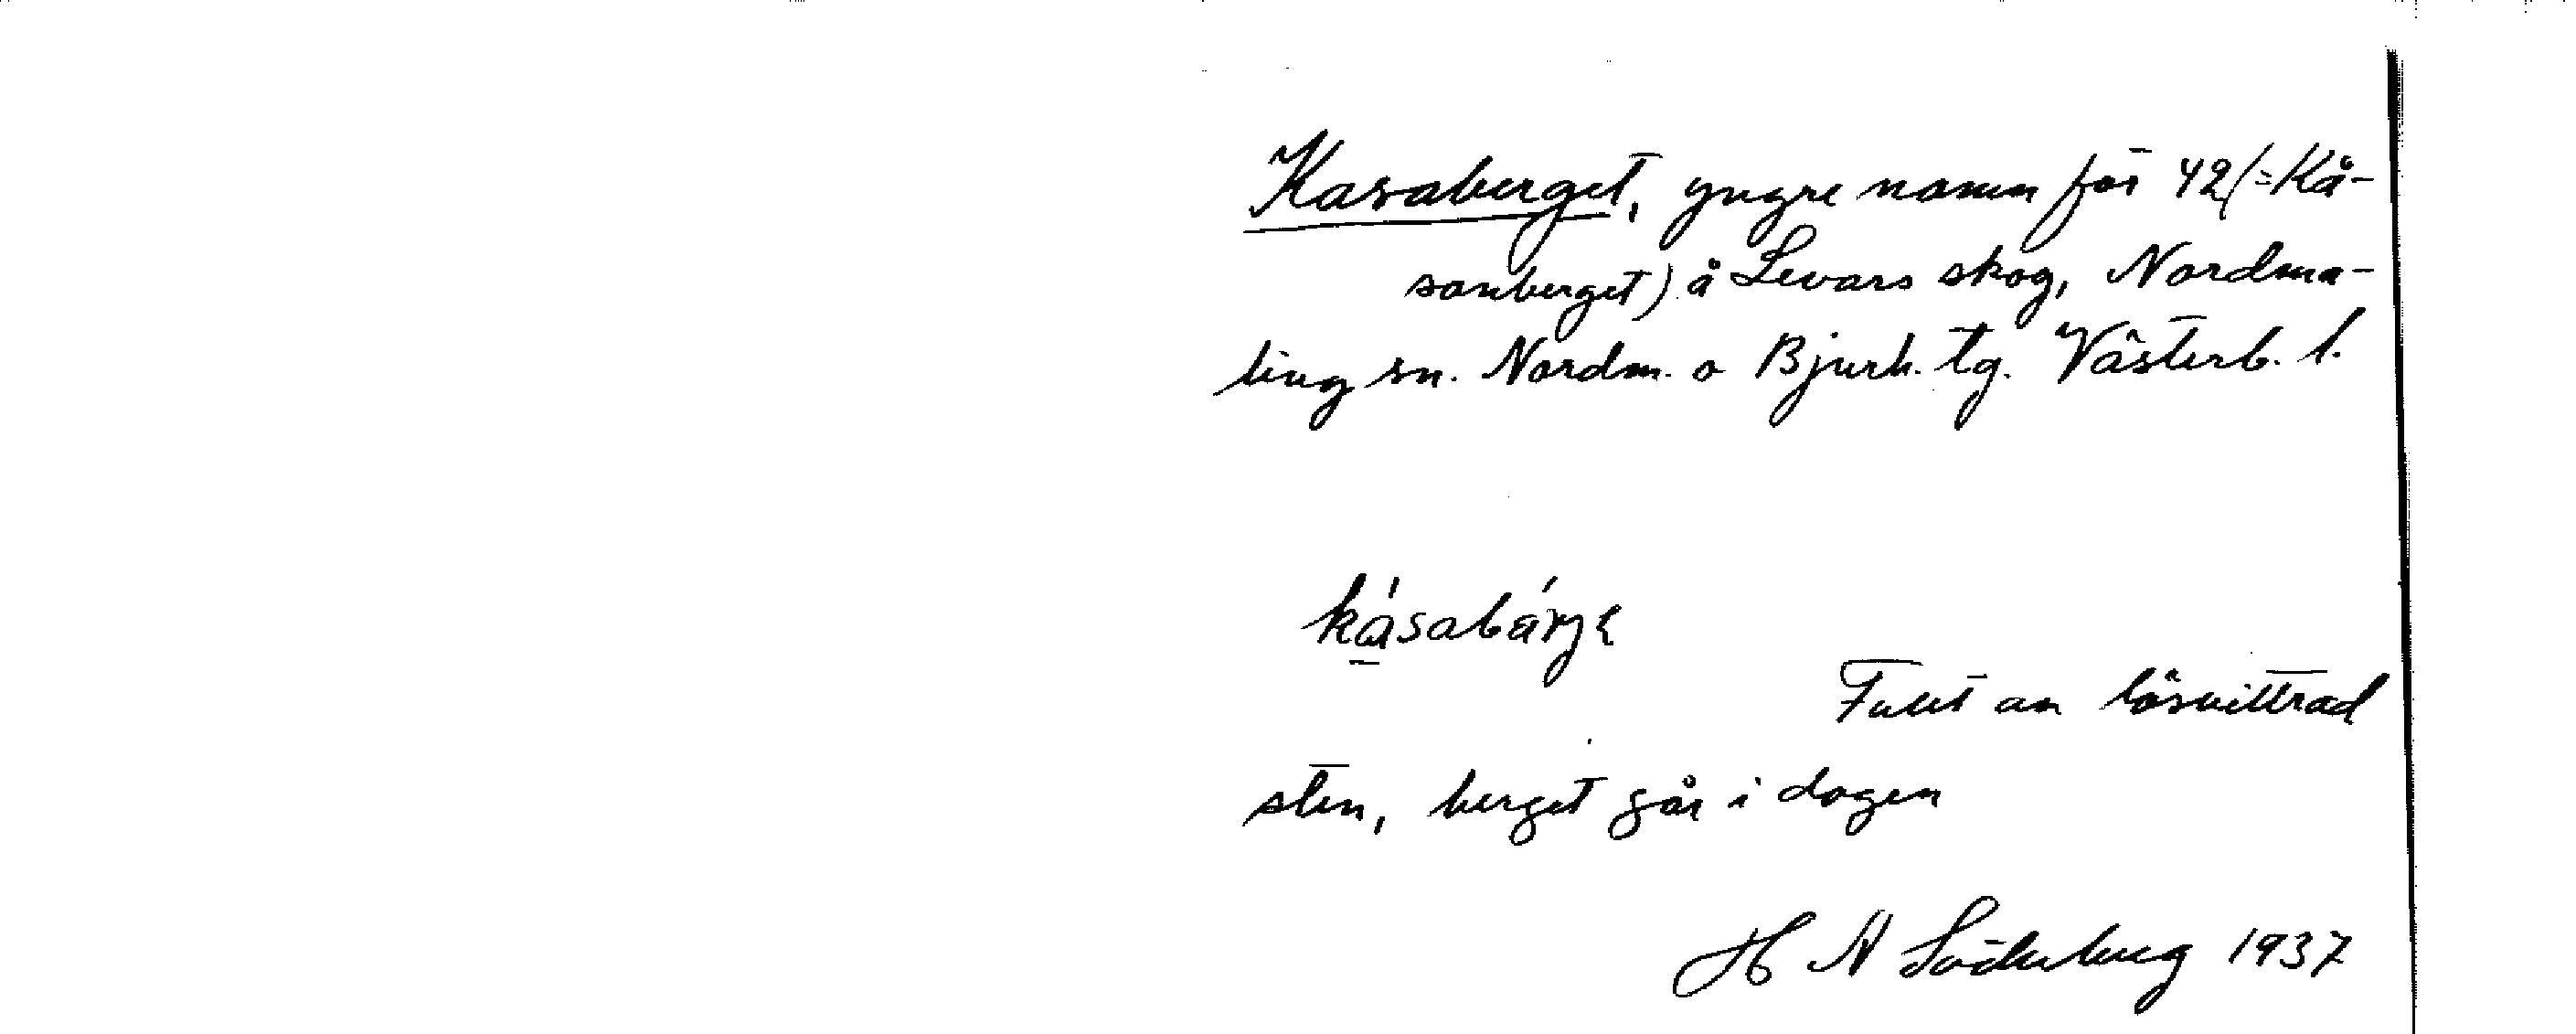 Kasaberget, yngre namn för 42 (= Kå-
sanberget) å Levars skog, Nordma-
ling sn. Nordm. o Bjurh. tg. Västerb. l.
Fullt av lösvittrad
sten, berget går i dagen
H N Söderberg 1937